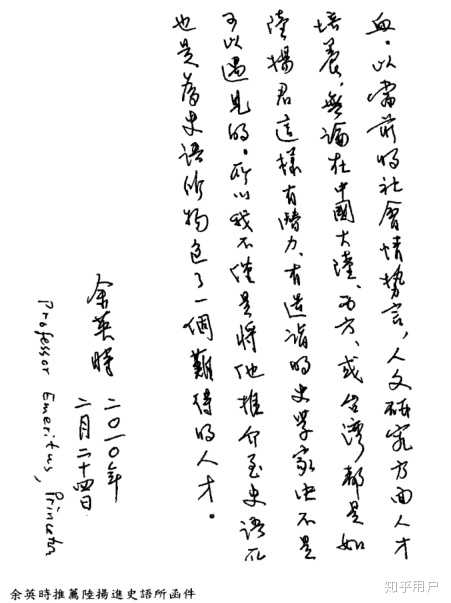 血。以當前的社會情勢言，人文研究方面人才
培養，無論在中國大陸、西方、或台灣都是如
陸揚君這樣有潛力、有造詣的史學家決不是
可以遇見的。所以我不僅是將他推介至史語所
也是為史語所物色了一個難得的人才。
余英時 二〇一〇年
二月二十四日
Professor Emeritus, Princeton
余英時推薦陸揚進史語所函件
知乎用户